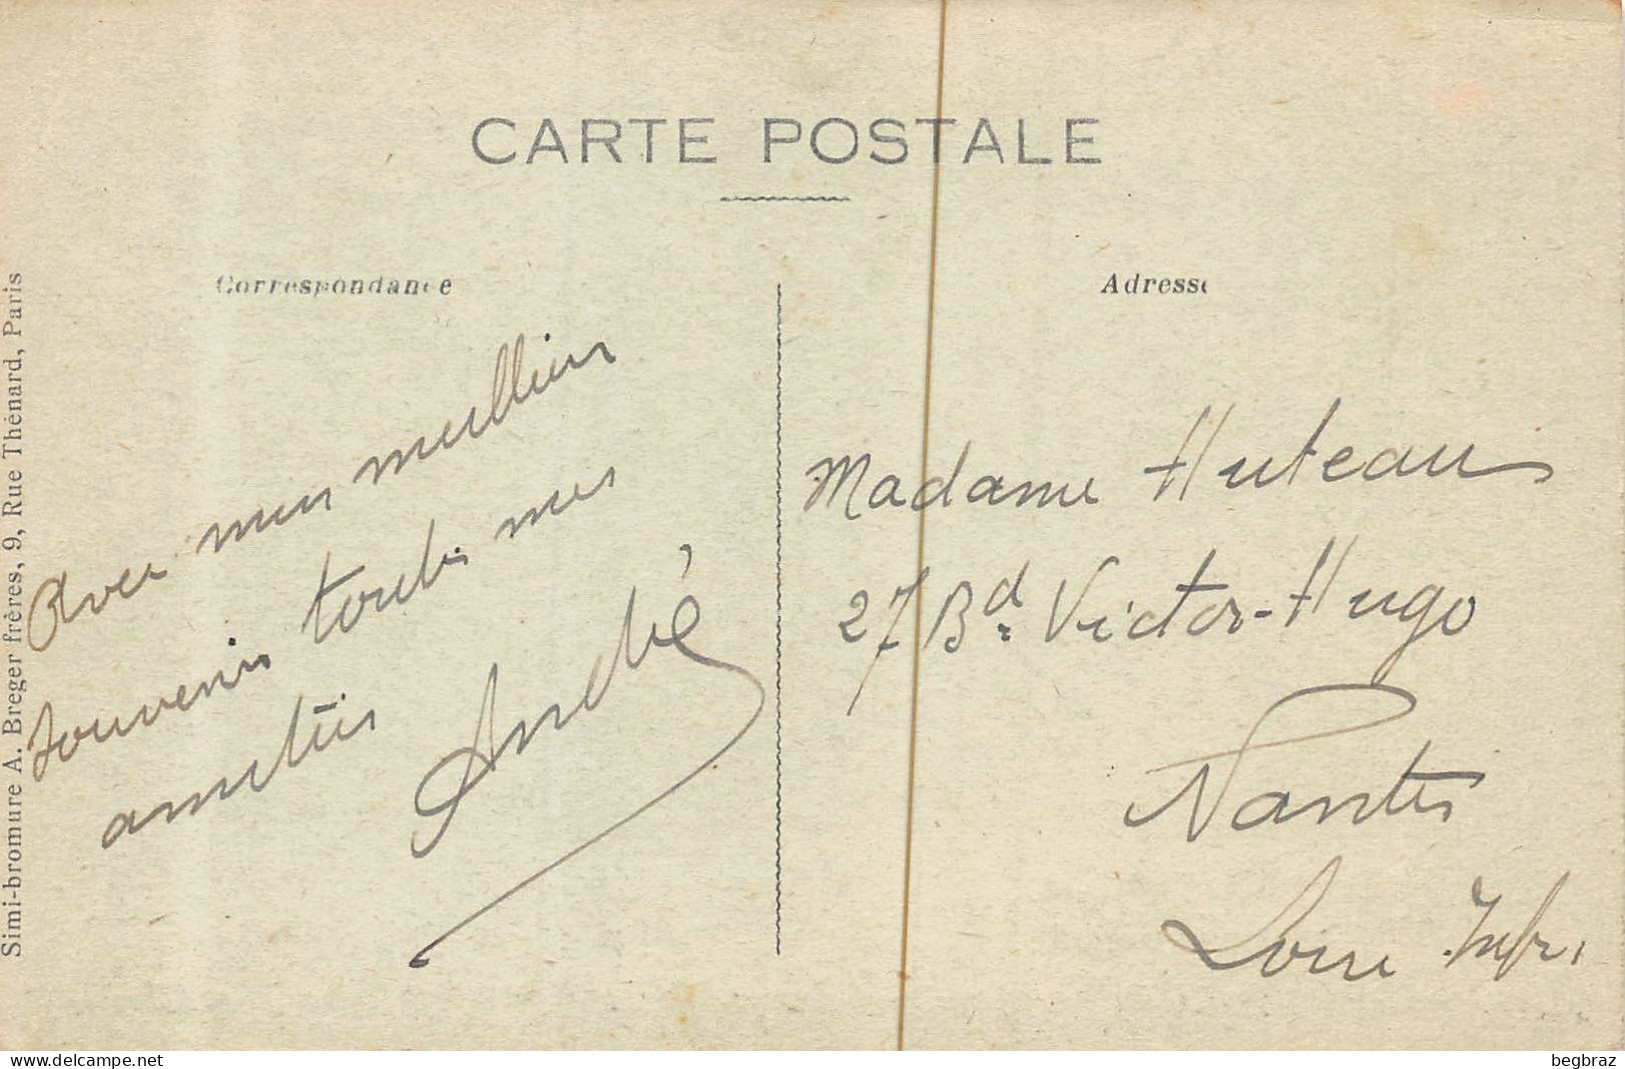 CARTE POSTALE
Correspondance
Adresse
Avec mes meilleurs
souvenirs toutes mes
amitiés
André
Madame Huteau
27 Bd. Victor-Hugo
Nantes
Loire Infr.
Simi-bromure A. Breger frères, 9, Rue Thénard, Paris
www.delcampe.net
begbraz